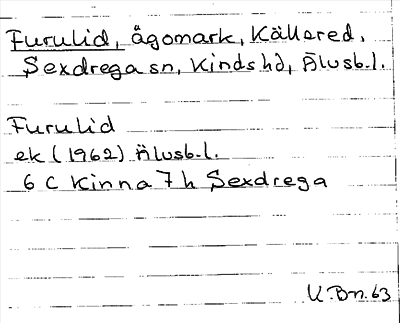 Furulid, ägomark, Källared,
Sexdrega sn, Kinds hd, Älvsb.l.
Furulid
ek (1962) Älvsb.l.
6 C Kinna 7 h Sexdrega
K.Bn.63